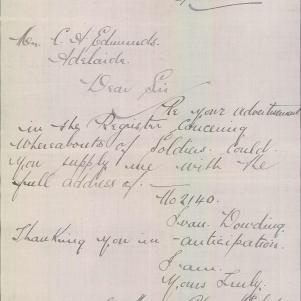 Mr. C. A. Edmunds.
Adelaide.
Dear Sir
Re your advertisement
in the Register concerning
whereabouts of Soldiers. Could
you supply me with the
full address of:—
No 2140.
Ivan Dowding.
Thanking you in -anticipation.
I am.
Yours Truly.